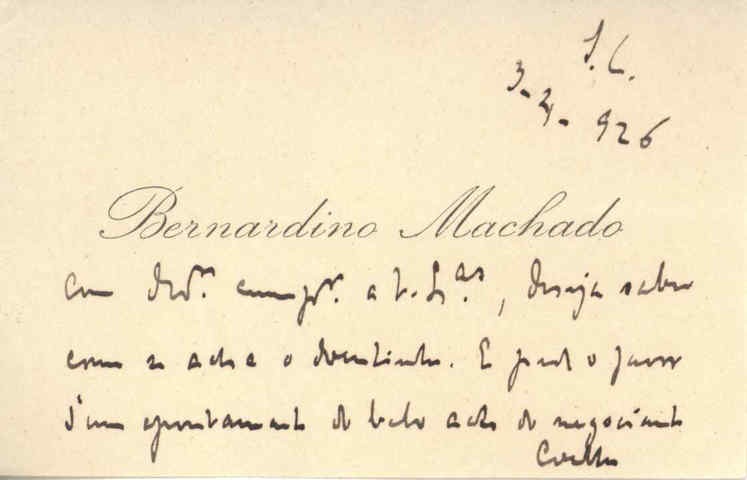 S. C.
3-4-926
Bernardino Machado
Com ded.os cump.os a V. Ex.as, deseja saber
como se acha o doentinho. E pede o favor
d'um apontamento do belo acto do negociante
Coelho